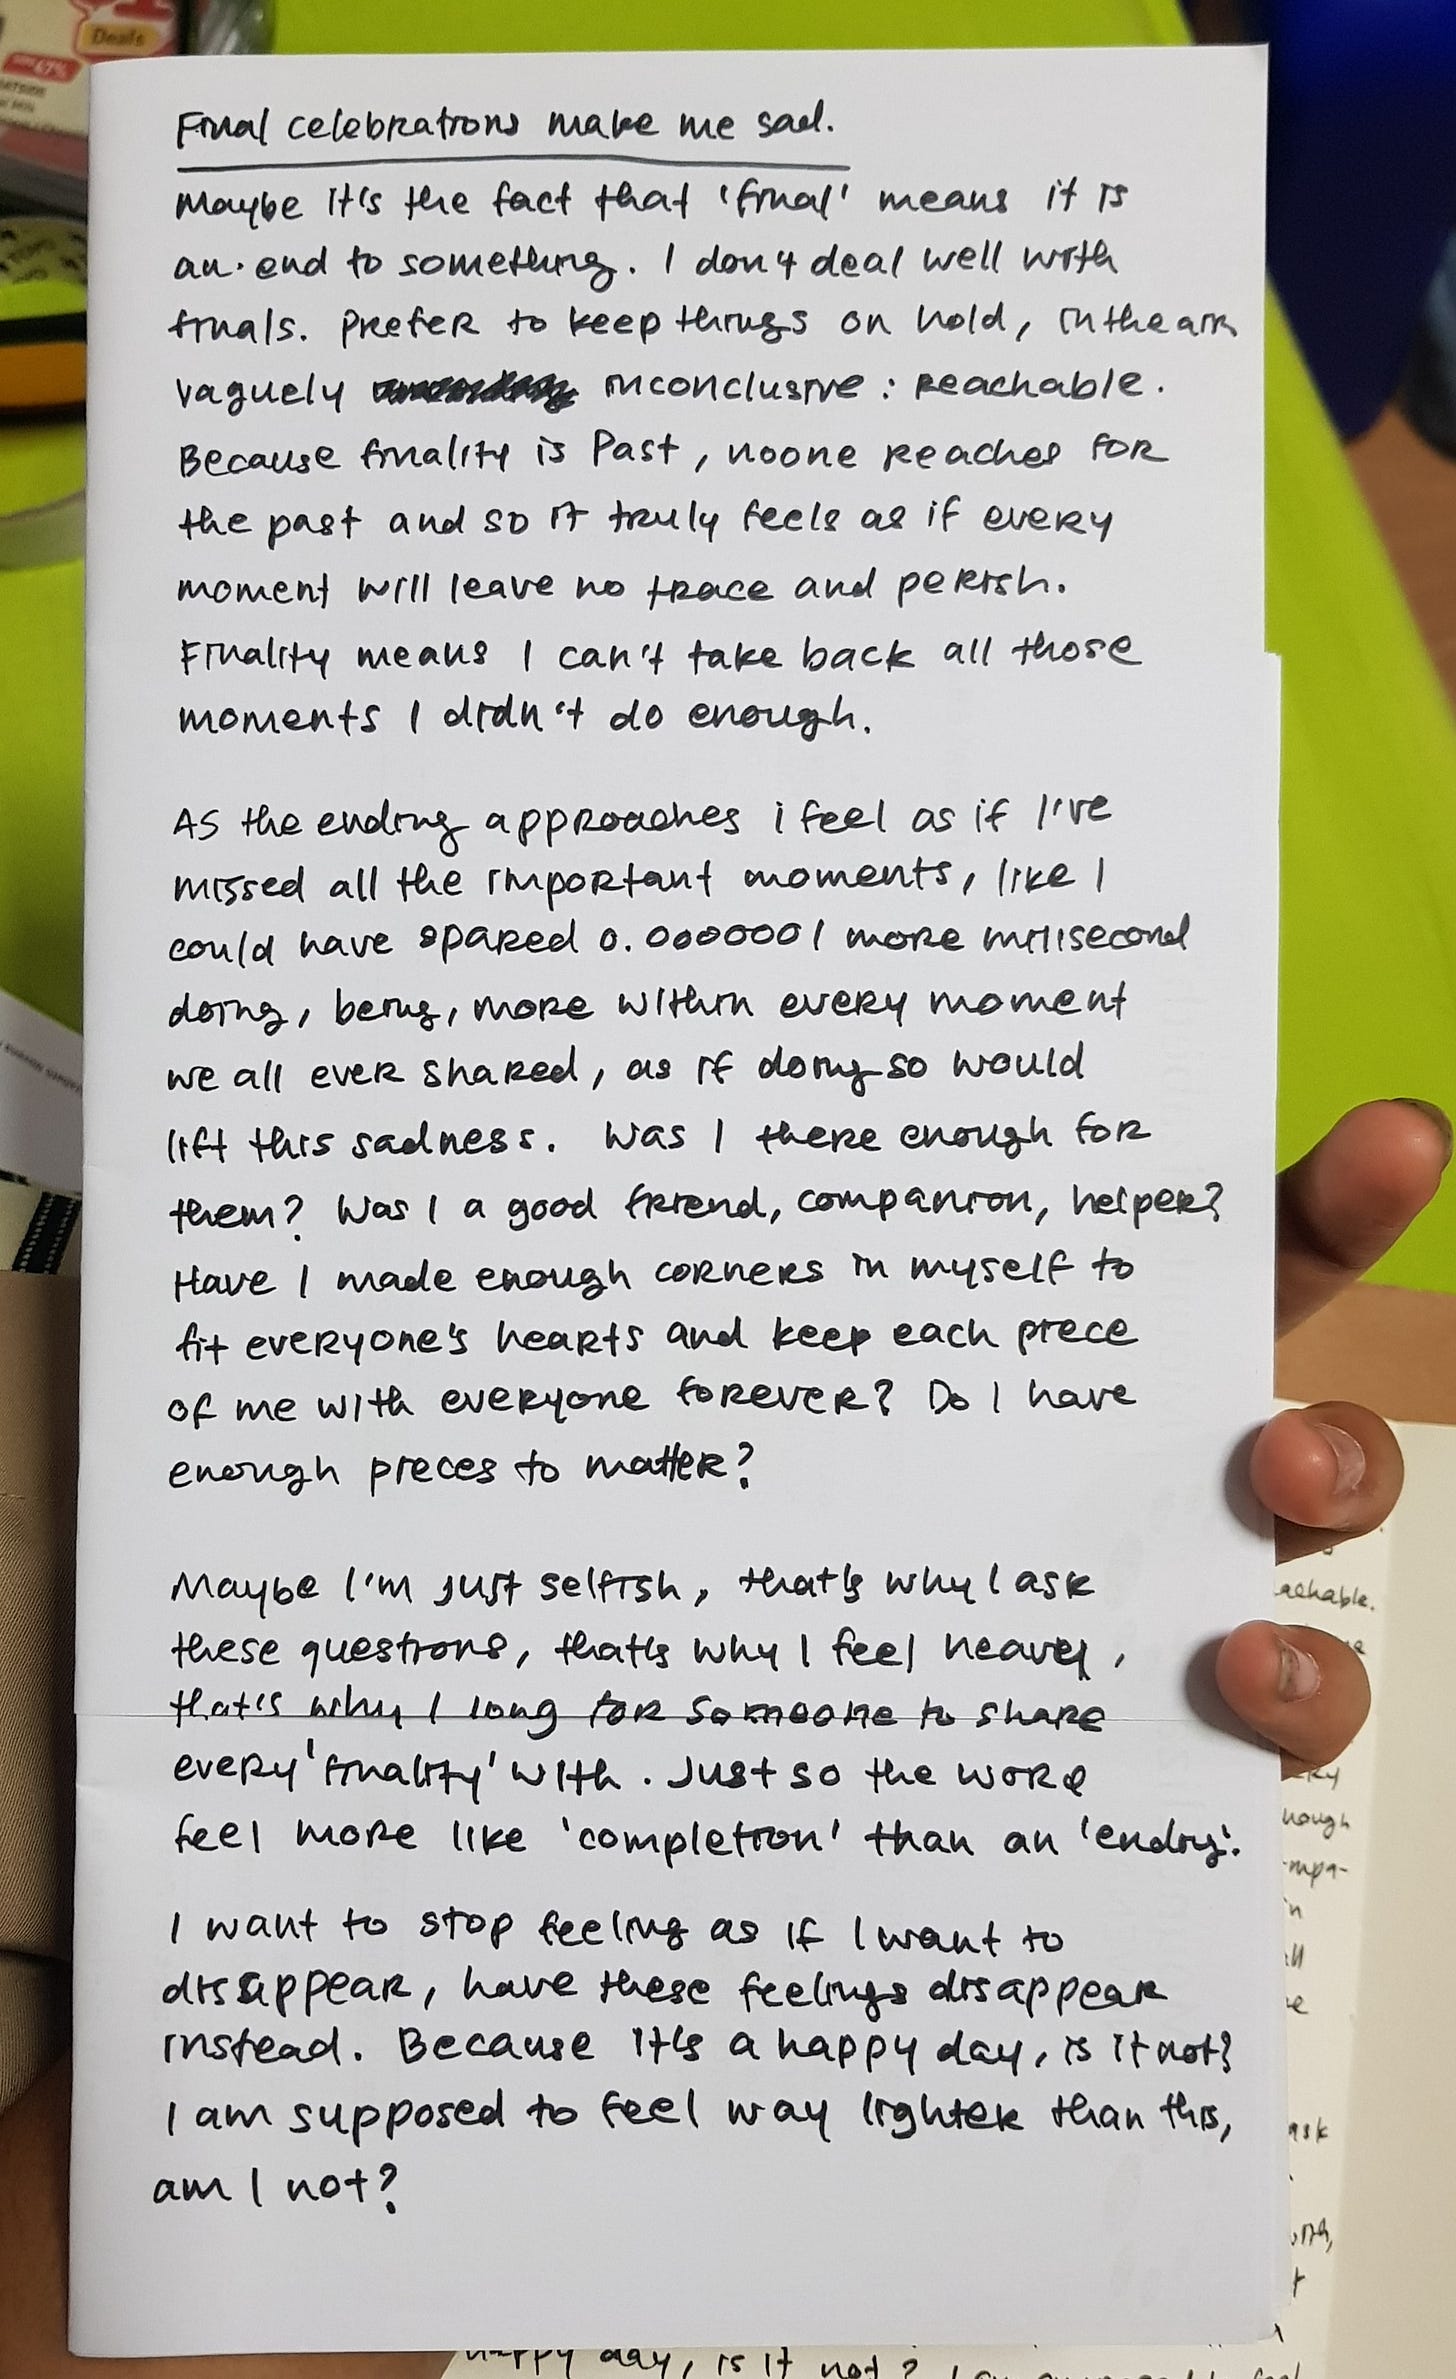 Deals
Final celebrations make me sad.
Maybe it's the fact that 'final' means it is
an end to something. I don't deal well with
finals. Prefer to keep things on hold, in the air
vaguely inconclusive : reachable.
Because finality is Past, noone reaches for
the past and so it truly feels as if every
moment will leave no trace and perish.
Finality means I can't take back all those
moments I didn't do enough.
As the ending approaches i feel as if I've
missed all the important moments, like I
could have spared 0.0000001 more millisecond
doing, being, more within every moment
we all ever shared, as if doing so would
lift this sadness. Was I there enough for
them? Was I a good friend, companion, helper?
Have I made enough corners in myself to
fit everyone's hearts and keep each piece
of me with everyone forever? Do I have
enough pieces to matter?
Maybe I'm just selfish, that's why I ask
these questions, that's why I feel heavy,
that's why I long for someone to share
every 'finality' with. Just so the word
feel more like 'completion' than an 'ending'.
I want to stop feeling as if I want to
disappear, have these feelings disappear
instead. Because it's a happy day, is it not?
I am supposed to feel way lighter than this,
am I not?
achable.
nough
ask
happy day, is it not?